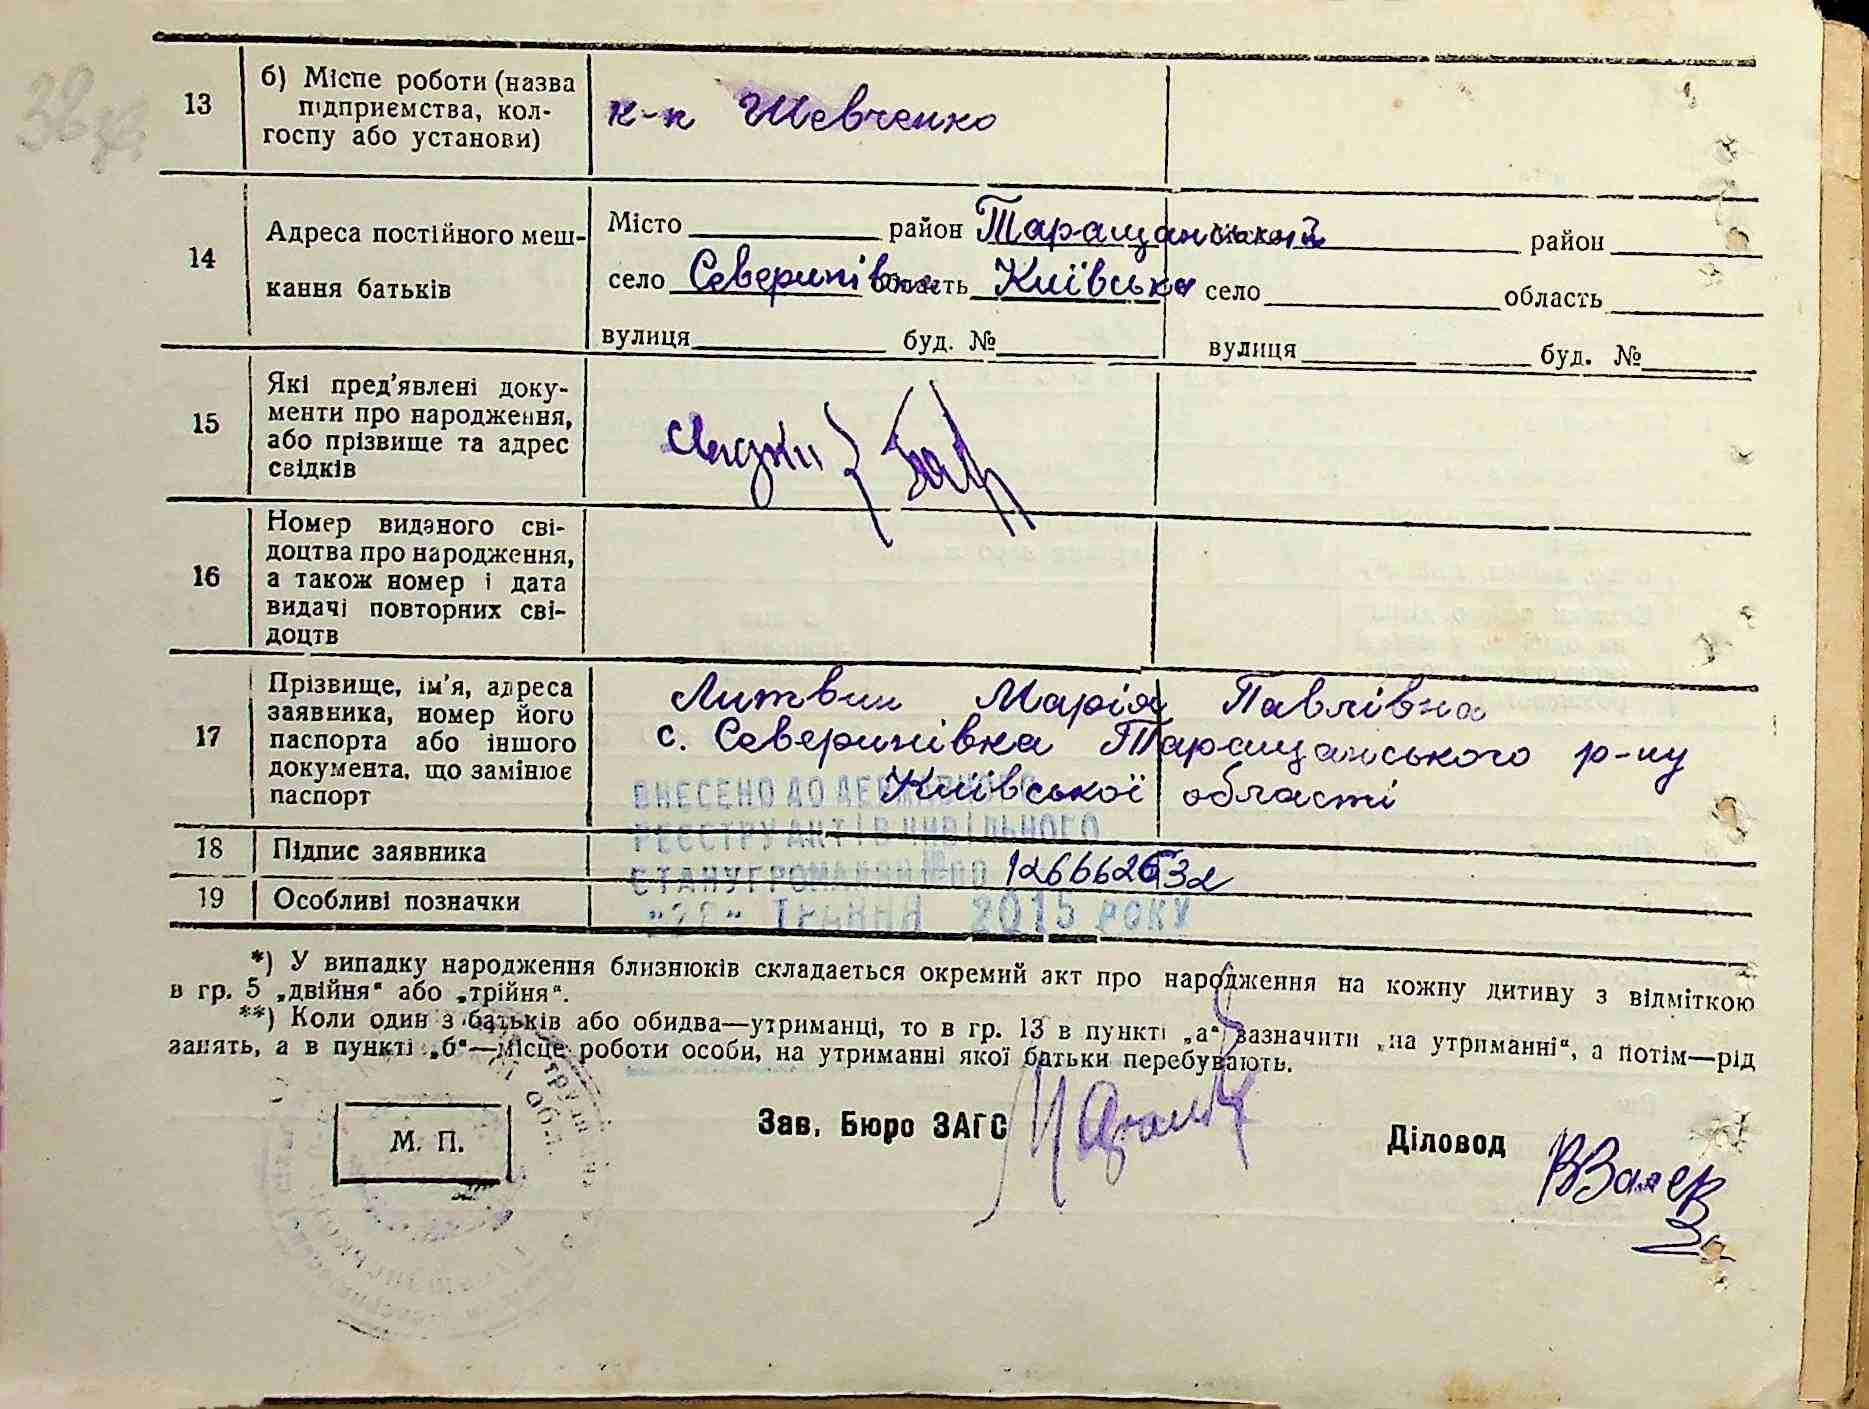 13
б) Місце роботи (назва
підприємства, кол-
госпу або установи)
к-п Шевченко
14
Адреса постійного меш-
кання батьків
Місто район Таращанський район
село Северинівка область Київська село область
вулиця буд. № вулиця буд. №
15
Які пред'явлені доку-
менти про народження,
або прізвище та адрес
свідків
свідки
16
Номер виданого сві-
доцтва про народження,
а також номер і дата
видачі повторних сві-
доцтв
17
Прізвище, ім'я, адреса
заявника, номер його
паспорта або іншого
документа, що замінює
паспорт
Литвин Марія Павлівна
с. Северинівка Таращанського р-ну
Київської області
ВНЕСЕНО ДО ДЕРЖАВНОГО
РЕЄСТРУ АКТІВ ЦИВІЛЬНОГО
СТАНУ ГРОМАДЯН
ТРАВНЯ 2015 РОКУ
18 Підпис заявника
19 Особливі позначки
*) У випадку народження близнюків складається окремий акт про народження на кожну дитину з відміткою
в гр. 5 „двійня“ або „трійня“.
**) Коли один з батьків або обидва—утриманці, то в гр. 13 в пункті „а“ зазначити „на утриманні“, а потім—рід
занять, а в пункті „б“—місце роботи особи, на утриманні якої батьки перебувають.
М. П.
Зав. Бюро ЗАГС
Діловод